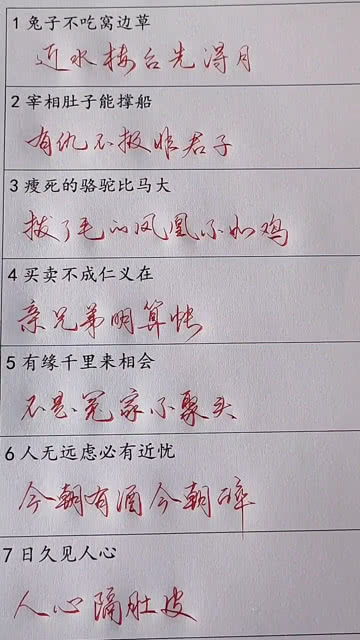 1 兔子不吃窝边草
近水楼台先得月
2 宰相肚子能撑船
有仇不报非君子
3 瘦死的骆驼比马大
拔了毛的凤凰不如鸡
4 买卖不成仁义在
亲兄弟明算帐
5 有缘千里来相会
不是冤家不聚头
6 人无远虑必有近忧
今朝有酒今朝醉
7 日久见人心
人心隔肚皮